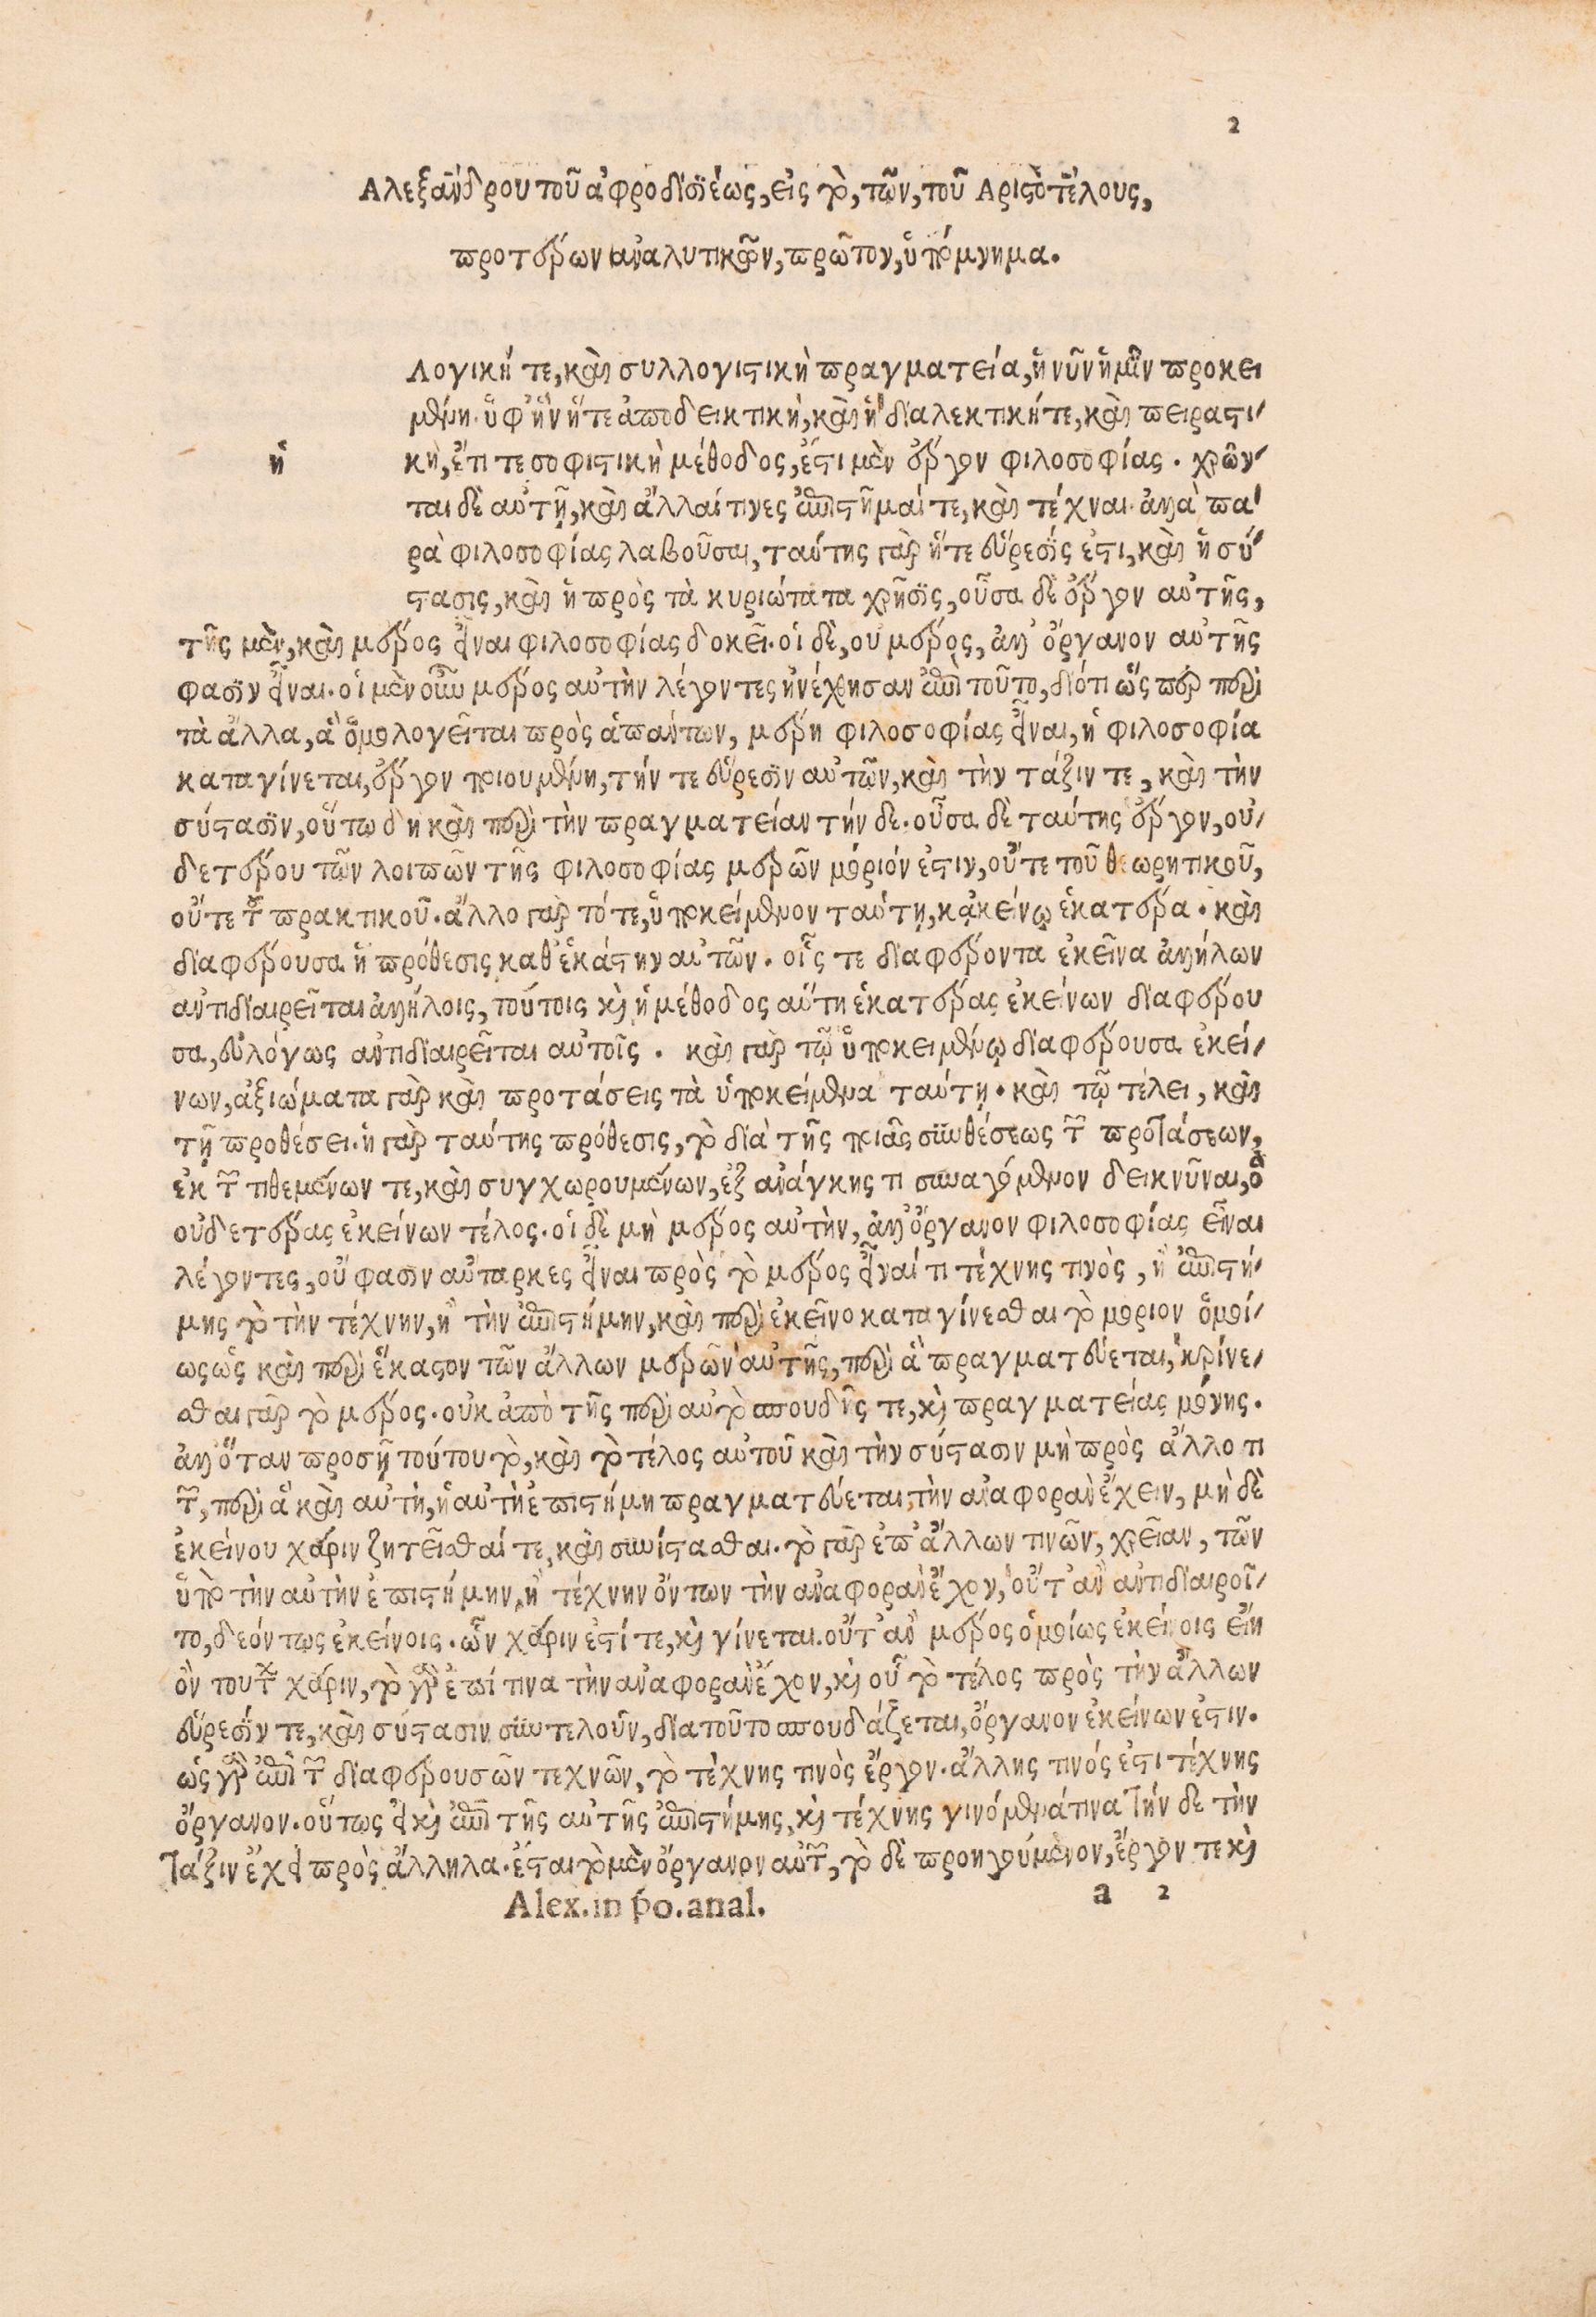 2
Αλεξάνδρου τοῦ ἀφροδισιέως, εἰς τὸ, τῶν, τοῦ Αριστοτέλους,
προτέρων ἀναλυτικῶν, πρῶτον, ὑπόμνημα.
Λογική τε, καὶ συλλογιστικὴ πραγματεία, ἡ νῦν ἡμῖν προκει
μένη· ὑφ' ἣν ἥ τε ἀποδεικτικὴ, καὶ ἡ διαλεκτική τε, καὶ πειραστι-
ἡ
κὴ, ἔτι τε σοφιστικὴ μέθοδος, ἔστι μὲν ἔργον φιλοσοφίας. χρῶν-
ται δὲ αὐτῇ, καὶ ἄλλαί τινες ἐπιστῆμαί τε, καὶ τέχναι· ἀλλὰ πα-
ρὰ φιλοσοφίας λαβοῦσαι, ταύτης γὰρ ἥ τε εὕρεσίς ἐστι, καὶ ἡ σύ-
στασις, καὶ ἡ πρὸς τὰ κυριώτατα χρῆσις, οὖσα δὲ ἔργον αὐτῆς,
τῆς μὲν, καὶ μέρος εἶναι φιλοσοφίας δοκεῖ. οἱ δὲ, ου μέρος, ἀλλ' ὄργανον αὐτῆς
φασὶν εἶναι. οἱ μὲν οὖν μέρος αὐτὴν λέγοντες ἠνέχθησαν ἐπὶ τοῦτο, διότι ὥς περ περὶ
τὰ ἄλλα, ἃ ὁμολογεῖται πρὸς ἁπάντων, μέρη φιλοσοφίας εἶναι, ἡ φιλοσοφία
καταγίνεται, ἔργον ποιουμένη, τήν τε εὕρεσιν αὐτῶν, καὶ τὴν τάξιν τε, καὶ τὴν
σύστασιν, οὕτω δὴ καὶ περὶ τὴν πραγματείαν τήν δε. οὖσα δὲ ταύτης ἔργον, οὐ-
δετέρου τῶν λοιπῶν τῆς φιλοσοφίας μερῶν μόριόν ἐστιν, οὔτε τοῦ θεωρητικοῦ,
οὔτε τοῦ πρακτικοῦ. ἄλλο γὰρ τό τε, ὑποκείμενον ταύτῃ, κἀκείνῳ ἑκατέρα. καὶ
διαφέρουσα ἡ πρόθεσις καθ' ἑκάστην αὐτῶν. οἷς τε διαφέροντα ἐκεῖνα ἀλλήλων
ἀντιδιαιρεῖται ἀλλήλοις, τούτοις καὶ ἡ μέθοδος αὕτη ἑκατέρας ἐκείνων διαφέρου
σα, εὐλόγως ἀντιδιαιρεῖται αὐτοῖς. καὶ γὰρ τῷ ὑποκειμένῳ διαφέρουσα ἐκεί-
νων, ἀξιώματα γὰρ καὶ προτάσεις τὰ ὑποκείμενα ταύτῃ. καὶ τῷ τέλει, καὶ
τῇ προθέσει. ἡ γὰρ ταύτης πρόθεσις, τὸ διὰ τῆς ποιᾶς συνθέσεως τῶν προτάσεων,
ἐκ τῶν τιθεμένων τε, καὶ συγχωρουμένων, ἐξ ἀνάγκης τι συναγόμενον δεικνῦναι, ὃ
οὐδετέρας ἐκείνων τέλος. οἱ δὲ μὴ μέρος αὐτὴν, ἀλλ' ὄργανον φιλοσοφίας εἶναι
λέγοντες, οὔ φασιν αὔταρκες εἶναι πρὸς τὸ μέρος εἶναί τι τέχνης τινὸς, ἢ ἐπιστή-
μης τὸ τὴν τέχνην, ἢ τὴν ἐπιστήμην, καὶ περὶ ἐκεῖνο καταγίνεσθαι τὸ μόριον ὁμοί-
ως ὡς καὶ περὶ ἕκαστον τῶν ἄλλων μερῶν αὐτῆς, περὶ ἃ πραγματεύεται, κρίνε-
σθαι γὰρ τὸ μέρος. οὐκ ἀπὸ τῆς περὶ αὐτὸ σπουδῆς τε, καὶ πραγματείας μόνης.
ἀλλ' ὅταν προσῇ τούτου τὸ, καὶ τὸ τέλος αὐτοῦ καὶ τὴν σύστασιν μὴ πρὸς ἄλλο τι
τῶν, περὶ ἃ καὶ αὐτὴ, ἡ αὐτὴ ἐπιστήμη πραγματεύεται, τὴν ἀναφορὰν ἔχειν, μὴ δὲ
ἐκείνου χάριν ζητεῖσθαί τε, καὶ συνίστασθαι. τὸ γὰρ ἐπ' ἄλλων τινῶν, χρείαν, τῶν
ὑπὸ τὴν αὐτὴν ἐπιστήμην, ἢ τέχνην ὄντων τὴν ἀναφορὰν ἔχον, οὔτ' ἂν ἀντιδιαιροῖ-
το, δεόντως ἐκείνοις. ὧν χάριν ἐστί τε, καὶ γίνεται. οὔτ' ἂν μέρος ὁμοίως ἐκείνοις εἴη
ὂν τούτων χάριν, τὸ γὰρ ἐπί τινα τὴν ἀναφορὰν ἔχον, καὶ οὗ τὸ τέλος πρὸς τὴν ἄλλων
εὕρεσίν τε, καὶ σύστασιν συντελοῦν, διατοῦτο σπουδάζεται, ὄργανον ἐκείνων ἐστιν.
ὡς γὰρ ἐπὶ τῶν διαφερουσῶν τεχνῶν, τὸ τέχνης τινὸς ἔργον. ἄλλης τινός ἐστι τέχνης
ὄργανον. οὕτως εἰ καὶ ἐπὶ τῆς αὐτῆς ἐπιστήμης, καὶ τέχνης γινόμενά τινα τήν δε τὴν
τάξιν ἔχει πρὸς ἄλληλα. ἔσται τὸ μὲν ὄργανον αὐτῶν, τὸ δὲ προηγούμενον, ἔργόν τε καὶ
Alex. in p̄o. anal. a 2